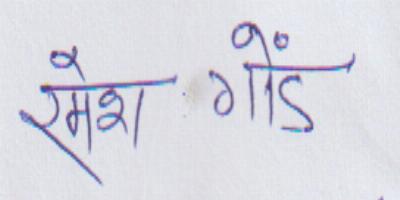 रमेश गोंड